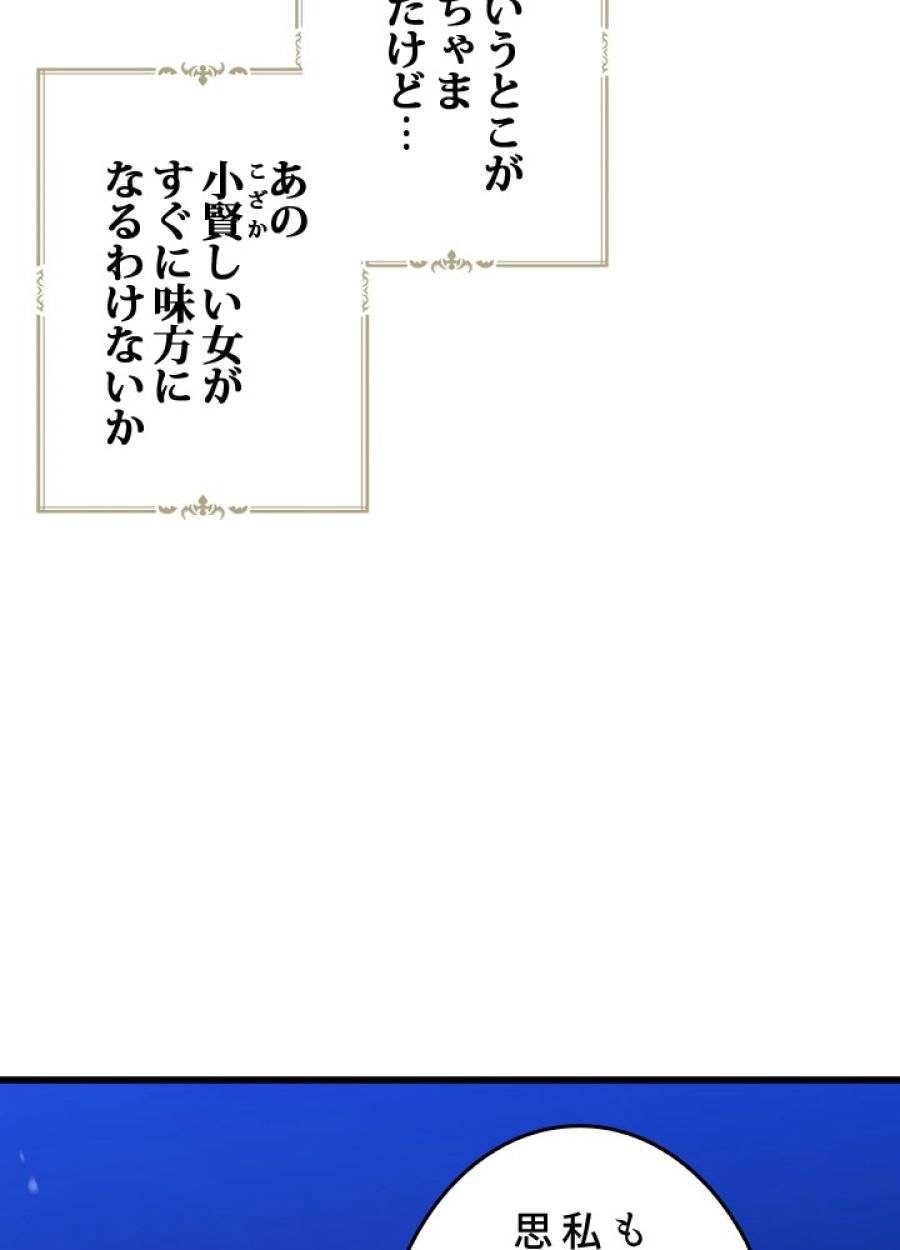 いうとこが
ちゃま
たけど…
あの
小賢しい女が
こざか
すぐに味方に
なるわけないか
も
私
思